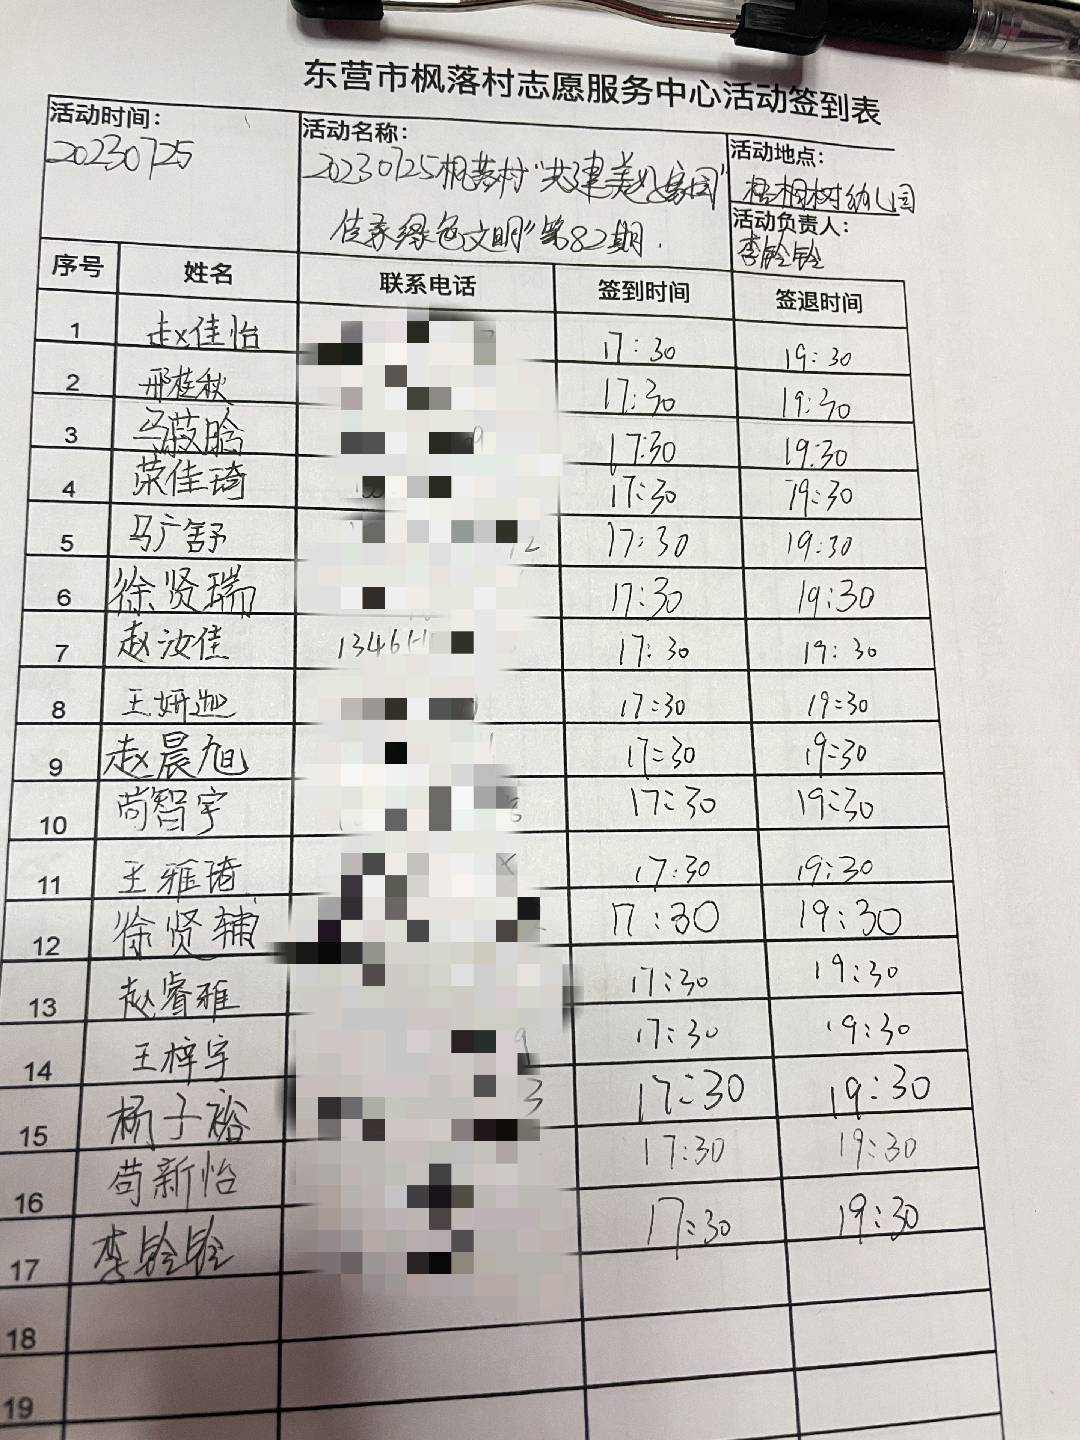 东营市枫落村志愿服务中心活动签到表
活动时间: 活动名称: 活动地点:
20230725 20230725枫落村"共建美好家园 梧桐树幼儿园
传承绿色文明"第82期. 活动负责人:
李铃铃
序号 姓名 联系电话 签到时间 签退时间
1 赵佳怡 17:30 19:30
2 邢桂秋 17:30 19:30
3 马 17:30 19:30
4 荣佳琦 17:30 19:30
5 马广舒 17:30 19:30
6 徐贤瑞 17:30 19:30
7 赵汝佳 1346 17:30 19:30
8 王妍迦 17:30 19:30
9 赵晨旭 17:30 19:30
10 苟智宇 17:30 19:30
11 王雅琦 17:30 19:30
12 徐贤辅 17:30 19:30
13 赵睿雅 17:30 19:30
14 王梓宇 17:30 19:30
15 杨子裕 3 17:30 19:30
16 苟新怡 17:30 19:30
17 李铃铃 17:30 19:30
18
19